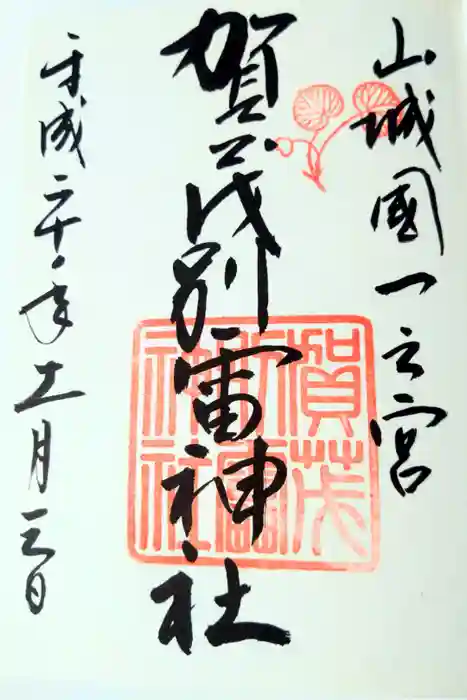 山城國一之宮
賀茂別雷神社
平成二十年十一月三日
賀茂
別雷
神社